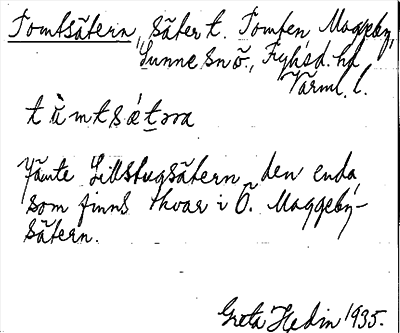 Tomtsätern, säter t. Tomten Maggeby,
Sunne sn Ö., Fryksd. hd
Värml. l.
tùmtsǽtɲa
Jämte Lillstugsätern den enda
som finns kvar i Ö. Maggeby-
sätern.
Greta Hedin 1935.